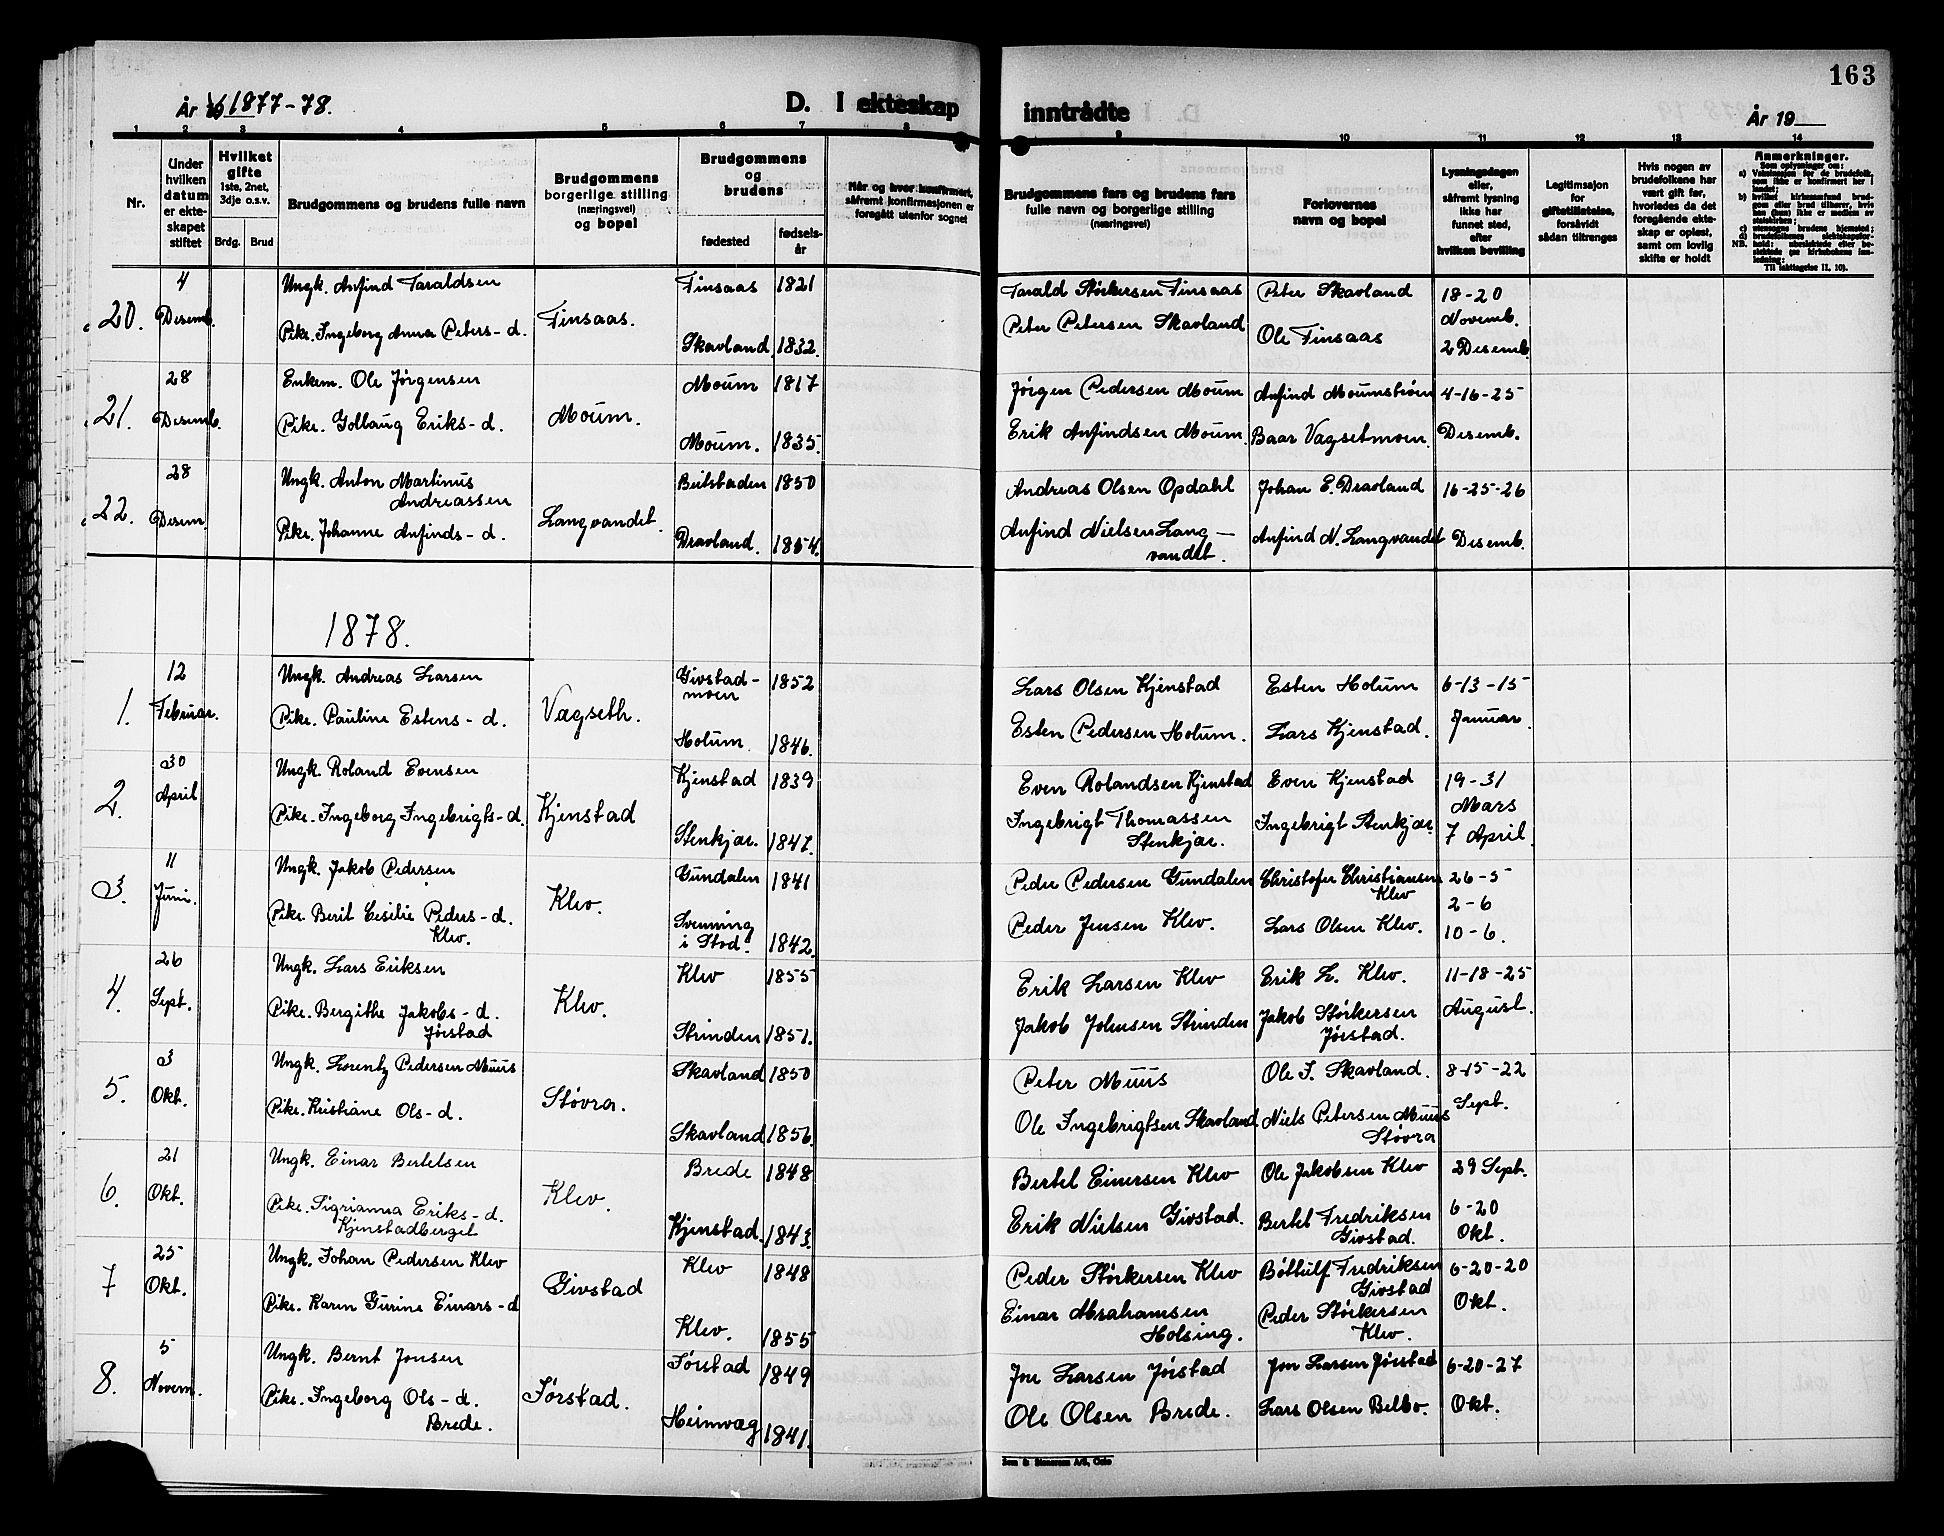 163
År 19 1877-78.
D. I ekteskap inntrådte
År 19
1 2 3 4 5 6 7 8 9 10 11 12 13 14
Nr.
Under hvilken datum er ekteskapet stiftet
Hvilket gifte 1ste, 2net, 3dje o.s.v.
Brdg. Brud
Brudgommens og brudens fulle navn
Brudgommens borgerlige stilling (næringsvei) og bopel
Brudgommens og brudens
fødested
fødselsår
Når og hvor konfirmert, såfremt konfirmasjonen er foregått utenfor sognet
Brudgommens fars og brudens fars fulle navn og borgerlige stilling (næringsvei)
Forlovernes navn og bopel
Lysningsdagen eller, såfremt lysning ikke har funnet sted, efter hvilken bevilling
Legitimasjon for giftetillatelse, forsåvidt sådan tiltrenges
Hvis nogen av brudefolkene har vært gift før, hvorledes da det foregående ekteskap er opløst, samt om lovlig skifte er holdt
Anmerkninger.
Som oplysninger om:
20. 4 Desemb. Ungk. Anfind Taraldsen Finsaas. Finsaas 1821 Tarald Størkersen Finsaas Peter Skavland 18-20 Novemb.
Pike. Ingeborg Anna Peters-d. Skavland 1832. Peter Petersen Skavland Ole Finsaas 2 Desemb.
21. 28 Desemb. Enkem. Ole Jørgensen Moum. Moum 1817 Jørgen Pedersen Moum Anfind Moumstrøen 4-16-25
Pike. Golbaug Eriks-d. Moum. 1835. Erik Anfindsen Moum. Baar Vagsetmoen. Desemb.
22. 28 Desem. Ungk. Anton Martinus Andreassen Langvandet. Beitstaden 1850 Andreas Olsen Opdahl Johan E. Dravland 16-25-26
Pike. Johanne Anfinds-d. Dravland. 1854. Anfind Nielsen Langvandet. Anfind N. Langvandet Desemb.
1878.
1. 12 Februar. Ungk. Andreas Larsen Vagseth. Givstadmoen 1852 Lars Olsen Kjenstad Esten Holum 6-13-15
Pike. Pauline Estens-d. Holum. 1846. Esten Pedersen Holum. Lars Kjenstad. Januar.
2. 30 April Ungk. Roland Evensen Kjenstad Kjenstad 1839 Even Rolandsen Kjenstad Even Kjenstad 19-31 Mars
Pike. Ingeborg Ingebrigts-d. Stenkjær. 1847. Ingebrigt Thomassen Stenkjær. Ingebrigt Stenkjær. 7 April
3. 11 Juni. Ungk. Jakob Pedersen Klev. Gundalen 1841 Peder Pedersen Gundalen Christofer Christiansen Klev 26-5 2-6
Pike. Berit Cesilie Peders-d. Klev. Svenning i Stod. 1842. Peder Jensen Klev. Lars Olsen Klev. 10-6.
4. 26 Sept. Ungk. Lars Eriksen Klev. Klev 1855 Erik Larsen Klev Erik L. Klev. 11-18-25
Pike. Bergithe Jakobs-d. Jørstad Strinden 1851. Jakob Johnsen Strinden Jakob Størkersen Jørstad. August.
5. 3 Okt. Ungk. Lorentz Pedersen Muus Støvra. Skavland 1850 Peter Muus Ole I. Skavland. 8-15-22
Pike. Kristiane Ols-d. Skavland 1856. Ole Ingebrigtsen Skavland Niels Petersen Muus Støvra Sept.
6. 21 Okt. Ungk. Einar Bertelsen Klev. Brede 1848 Bertel Einersen Klev Ole Jakobsen Klev 29 Sept.
Pike. Sigrianna Eriks-d. Kjenstadberget Kjenstad. 1843. Erik Nielsen Givstad. Bertel Fredriksen Givstad. 6-20 Okt.
7 25 Okt. Ungk. Johan Pedersen Klev Givstad Klev 1848 Peder Størkersen Klev Bøttulf Fredriksen Givstad 6-20-20
Pike. Karen Gurine Einars-d Klev. 1855 Einar Abrahamsen Holsing. Peder Størkersen Klev. Okt.
8. 5 Novem. Ungk. Bernt Jonsen Jørstad. Jørstad 1849 Jon Larsen Jørstad Jon Larsen Jørstad 6-20-27
Pike. Ingeborg Ols-d. Brede. Heimvag 1841. Ole Olsen Brede. Lars Olsen Belbo. Okt.